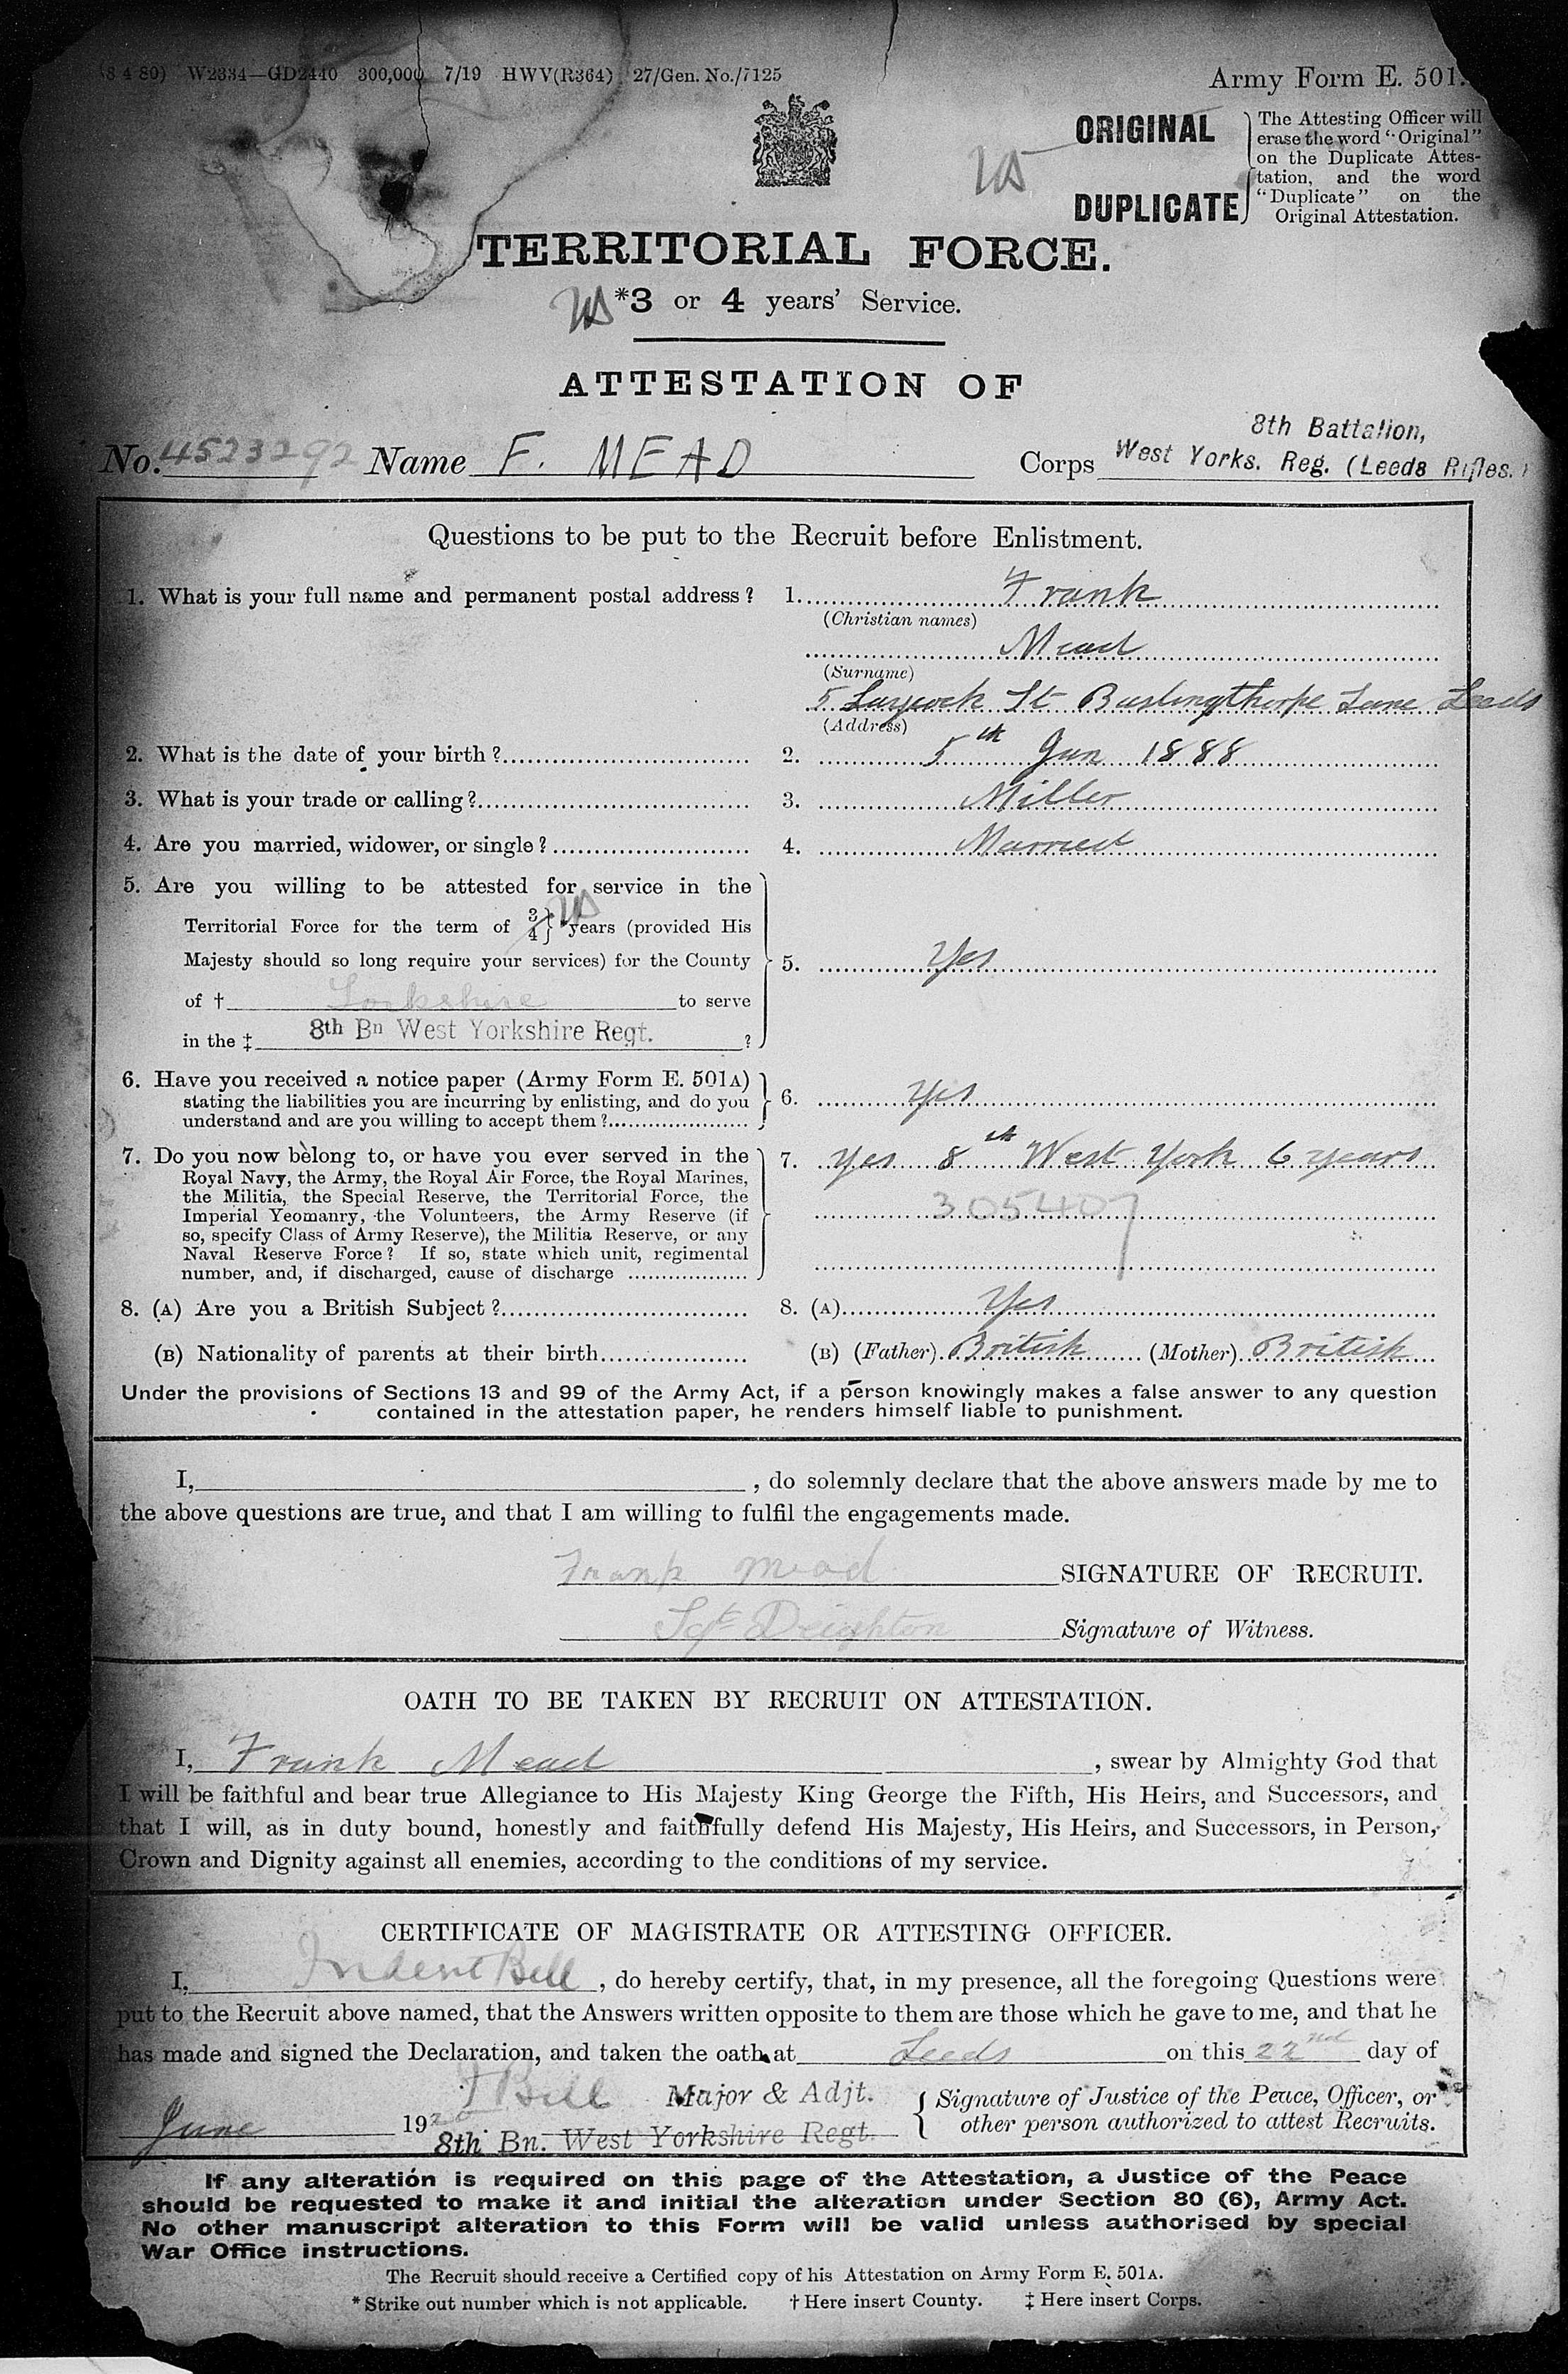 (8 4 80) W2334—GD2440 300,000 7/19 HWV(R364) 27/Gen. No./7125
Army Form E. 501.
ORIGINAL
DUPLICATE
The Attesting Officer will
erase the word "Original"
on the Duplicate Attes-
tation, and the word
"Duplicate" on the
Original Attestation.
TERRITORIAL FORCE.
*3 or 4 years' Service.
ATTESTATION OF
No. 4523292 Name F. MEAD Corps 8th Battalion,
West Yorks. Reg. (Leeds Rifles.)
Questions to be put to the Recruit before Enlistment.
1. What is your full name and permanent postal address? 1. Frank
(Christian names)
Mead
(Surname)
5 Laycock St Buslingthorpe Lane Leeds
(Address)
2. What is the date of your birth? 2. 5th Jan 1888
3. What is your trade or calling? 3. Miller
4. Are you married, widower, or single? 4. Married
5. Are you willing to be attested for service in the
Territorial Force for the term of 3/4 *years (provided His
Majesty should so long require your services) for the County
of † Yorkshire to serve
in the ‡ 8th Bn West Yorkshire Regt. ?
5. Yes
6. Have you received a notice paper (Army Form E. 501A)
stating the liabilities you are incurring by enlisting, and do you
understand and are you willing to accept them?
6. Yes
7. Do you now belong to, or have you ever served in the
Royal Navy, the Army, the Royal Air Force, the Royal Marines,
the Militia, the Special Reserve, the Territorial Force, the
Imperial Yeomanry, the Volunteers, the Army Reserve (if
so, specify Class of Army Reserve), the Militia Reserve, or any
Naval Reserve Force? If so, state which unit, regimental
number, and, if discharged, cause of discharge
7. Yes 8th West York 6 years
305407
8. (A) Are you a British Subject? 8. (A) Yes
(B) Nationality of parents at their birth (B) (Father) British (Mother) British
Under the provisions of Sections 13 and 99 of the Army Act, if a person knowingly makes a false answer to any question
contained in the attestation paper, he renders himself liable to punishment.
I, , do solemnly declare that the above answers made by me to
the above questions are true, and that I am willing to fulfil the engagements made.
Frank Mead SIGNATURE OF RECRUIT.
Sgt Deighton Signature of Witness.
OATH TO BE TAKEN BY RECRUIT ON ATTESTATION.
I, Frank Mead , swear by Almighty God that
I will be faithful and bear true Allegiance to His Majesty King George the Fifth, His Heirs, and Successors, and
that I will, as in duty bound, honestly and faithfully defend His Majesty, His Heirs, and Successors, in Person,
Crown and Dignity against all enemies, according to the conditions of my service.
CERTIFICATE OF MAGISTRATE OR ATTESTING OFFICER.
I, Bell , do hereby certify, that, in my presence, all the foregoing Questions were
put to the Recruit above named, that the Answers written opposite to them are those which he gave to me, and that he
has made and signed the Declaration, and taken the oath at Leeds on this 22nd day of
June 1920. Bell Major & Adjt.
8th Bn. West Yorkshire Regt.
Signature of Justice of the Peace, Officer, or
other person authorized to attest Recruits.
If any alteration is required on this page of the Attestation, a Justice of the Peace
should be requested to make it and initial the alteration under Section 80 (6), Army Act.
No other manuscript alteration to this Form will be valid unless authorised by special
War Office instructions.
The Recruit should receive a Certified copy of his Attestation on Army Form E. 501A.
* Strike out number which is not applicable. † Here insert County. ‡ Here insert Corps.